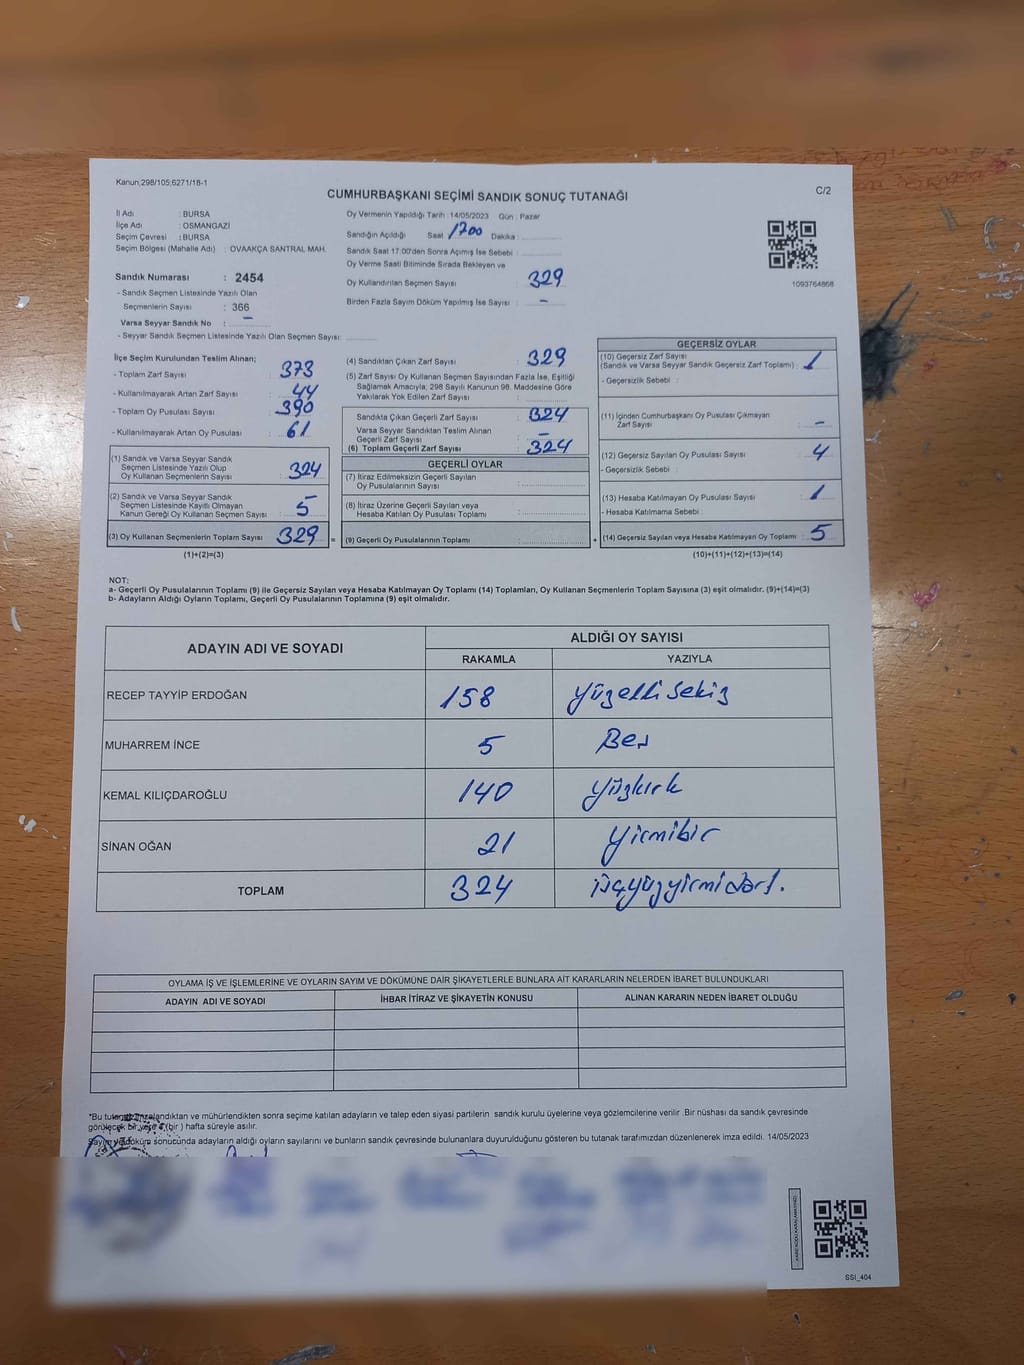 Kanun,298/105;6271/18-1
C/2
CUMHURBAŞKANI SEÇİMİ SANDIK SONUÇ TUTANAĞI
İl Adı : BURSA
İlçe Adı : OSMANGAZİ
Seçim Çevresi : BURSA
Seçim Bölgesi (Mahalle Adı) : OVAAKÇA SANTRAL MAH.
Sandık Numarası : 2454
- Sandık Seçmen Listesinde Yazılı Olan
Seçmenlerin Sayısı : 366
Varsa Seyyar Sandık No : –
- Seyyar Sandık Seçmen Listesinde Yazılı Olan Seçmen Sayısı:
Oy Vermenin Yapıldığı Tarih : 14/05/2023 Gün : Pazar
Sandığın Açıldığı Saat 1700 Dakika :
Sandık Saat 17:00'den Sonra Açımış İse Sebebi :
Oy Verme Saati Bitiminde Sırada Bekleyen ve
Oy Kullandırılan Seçmen Sayısı : 329
Birden Fazla Sayım Döküm Yapılmış İse Sayısı : –
1093764868
İlçe Seçim Kurulundan Teslim Alınan;
- Toplam Zarf Sayısı : 373
- Kullanılmayarak Artan Zarf Sayısı : 44
- Toplam Oy Pusulası Sayısı : 390
- Kullanılmayarak Artan Oy Pusulası : 61
(1) Sandık ve Varsa Seyyar Sandık
Seçmen Listesinde Yazılı Olup
Oy Kullanan Seçmenlerin Sayısı : 324
(2) Sandık ve Varsa Seyyar Sandık
Seçmen Listesinde Kayıtlı Olmayan
Kanun Gereği Oy Kullanan Seçmen Sayısı : 5
(3) Oy Kullanan Seçmenlerin Toplam Sayısı : 329 =
(1)+(2)=(3)
(4) Sandıktan Çıkan Zarf Sayısı : 329
(5) Zarf Sayısı Oy Kullanan Seçmen Sayısından Fazla İse, Eşitliği
Sağlamak Amacıyla; 298 Sayılı Kanunun 98. Maddesine Göre
Yakılarak Yok Edilen Zarf Sayısı :
Sandıkta Çıkan Geçerli Zarf Sayısı : 324
Varsa Seyyar Sandıktan Teslim Alınan
Geçerli Zarf Sayısı : –
(6) Toplam Geçerli Zarf Sayısı : 324
GEÇERLİ OYLAR
(7) İtiraz Edilmeksizin Geçerli Sayılan
Oy Pusulalarının Sayısı :
(8) İtiraz Üzerine Geçerli Sayılan veya
Hesaba Katılan Oy Pusulası Toplamı :
(9) Geçerli Oy Pusulalarının Toplamı : +
GEÇERSİZ OYLAR
(10) Geçersiz Zarf Sayısı
(Sandık ve Varsa Seyyar Sandık Geçersiz Zarf Toplamı) : 1
- Geçersizlik Sebebi :
(11) İçinden Cumhurbaşkanı Oy Pusulası Çıkmayan
Zarf Sayısı : –
(12) Geçersiz Sayılan Oy Pusulası Sayısı : 4
- Geçersizlik Sebebi :
(13) Hesaba Katılmayan Oy Pusulası Sayısı : 1
- Hesaba Katılmama Sebebi :
(14) Geçersiz Sayılan veya Hesaba Katılmayan Oy Toplamı : 5
(10)+(11)+(12)+(13)=(14)
NOT:
a- Geçerli Oy Pusulalarının Toplamı (9) ile Geçersiz Sayılan veya Hesaba Katılmayan Oy Toplamı (14) Toplamları, Oy Kullanan Seçmenlerin Toplam Sayısına (3) eşit olmalıdır. (9)+(14)=(3)
b- Adayların Aldığı Oyların Toplamı, Geçerli Oy Pusulalarının Toplamına (9) eşit olmalıdır.
ADAYIN ADI VE SOYADI ALDIĞI OY SAYISI
RAKAMLA YAZIYLA
RECEP TAYYİP ERDOĞAN 158 Yüzelli sekiz
MUHARREM İNCE 5 Beş
KEMAL KILIÇDAROĞLU 140 Yüzkırk
SİNAN OĞAN 21 Yirmibir
TOPLAM 324 üçyüzyirmidört.
OYLAMA İŞ VE İŞLEMLERİNE VE OYLARIN SAYIM VE DÖKÜMÜNE DAİR ŞİKAYETLERLE BUNLARA AİT KARARLARIN NELERDEN İBARET BULUNDUKLARI
ADAYIN ADI VE SOYADI İHBAR İTİRAZ VE ŞİKAYETİN KONUSU ALINAN KARARIN NEDEN İBARET OLDUĞU
*Bu tutanak imzalandıktan ve mühürlendikten sonra seçime katılan adayların ve talep eden siyasi partilerin sandık kurulu üyelerine veya gözlemcilerine verilir .Bir nüshası da sandık çevresinde
görülecek bir yere (bir ) hafta süreyle asılır.
Sayım ve döküm sonucunda adayların aldığı oyların sayılarını ve bunların sandık çevresinde bulunanlara duyurulduğunu gösteren bu tutanak tarafımızdan düzenlenerek imza edildi. 14/05/2023
SSI_404